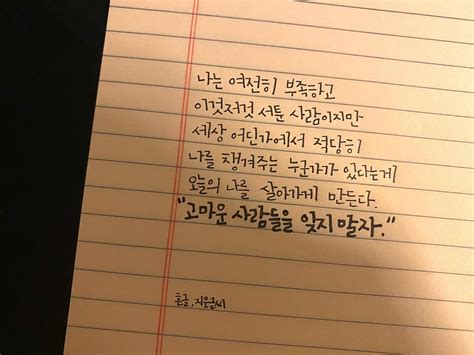 나는 여전히 부족하고
이것저것 서툰 사람이지만
세상 어딘가에서 적당히
나를 챙겨주는 누군가가 있다는게
오늘의 나를 살아가게 만든다.
"고마운 사람들을 잊지 말자."
흔글, 지은글씨